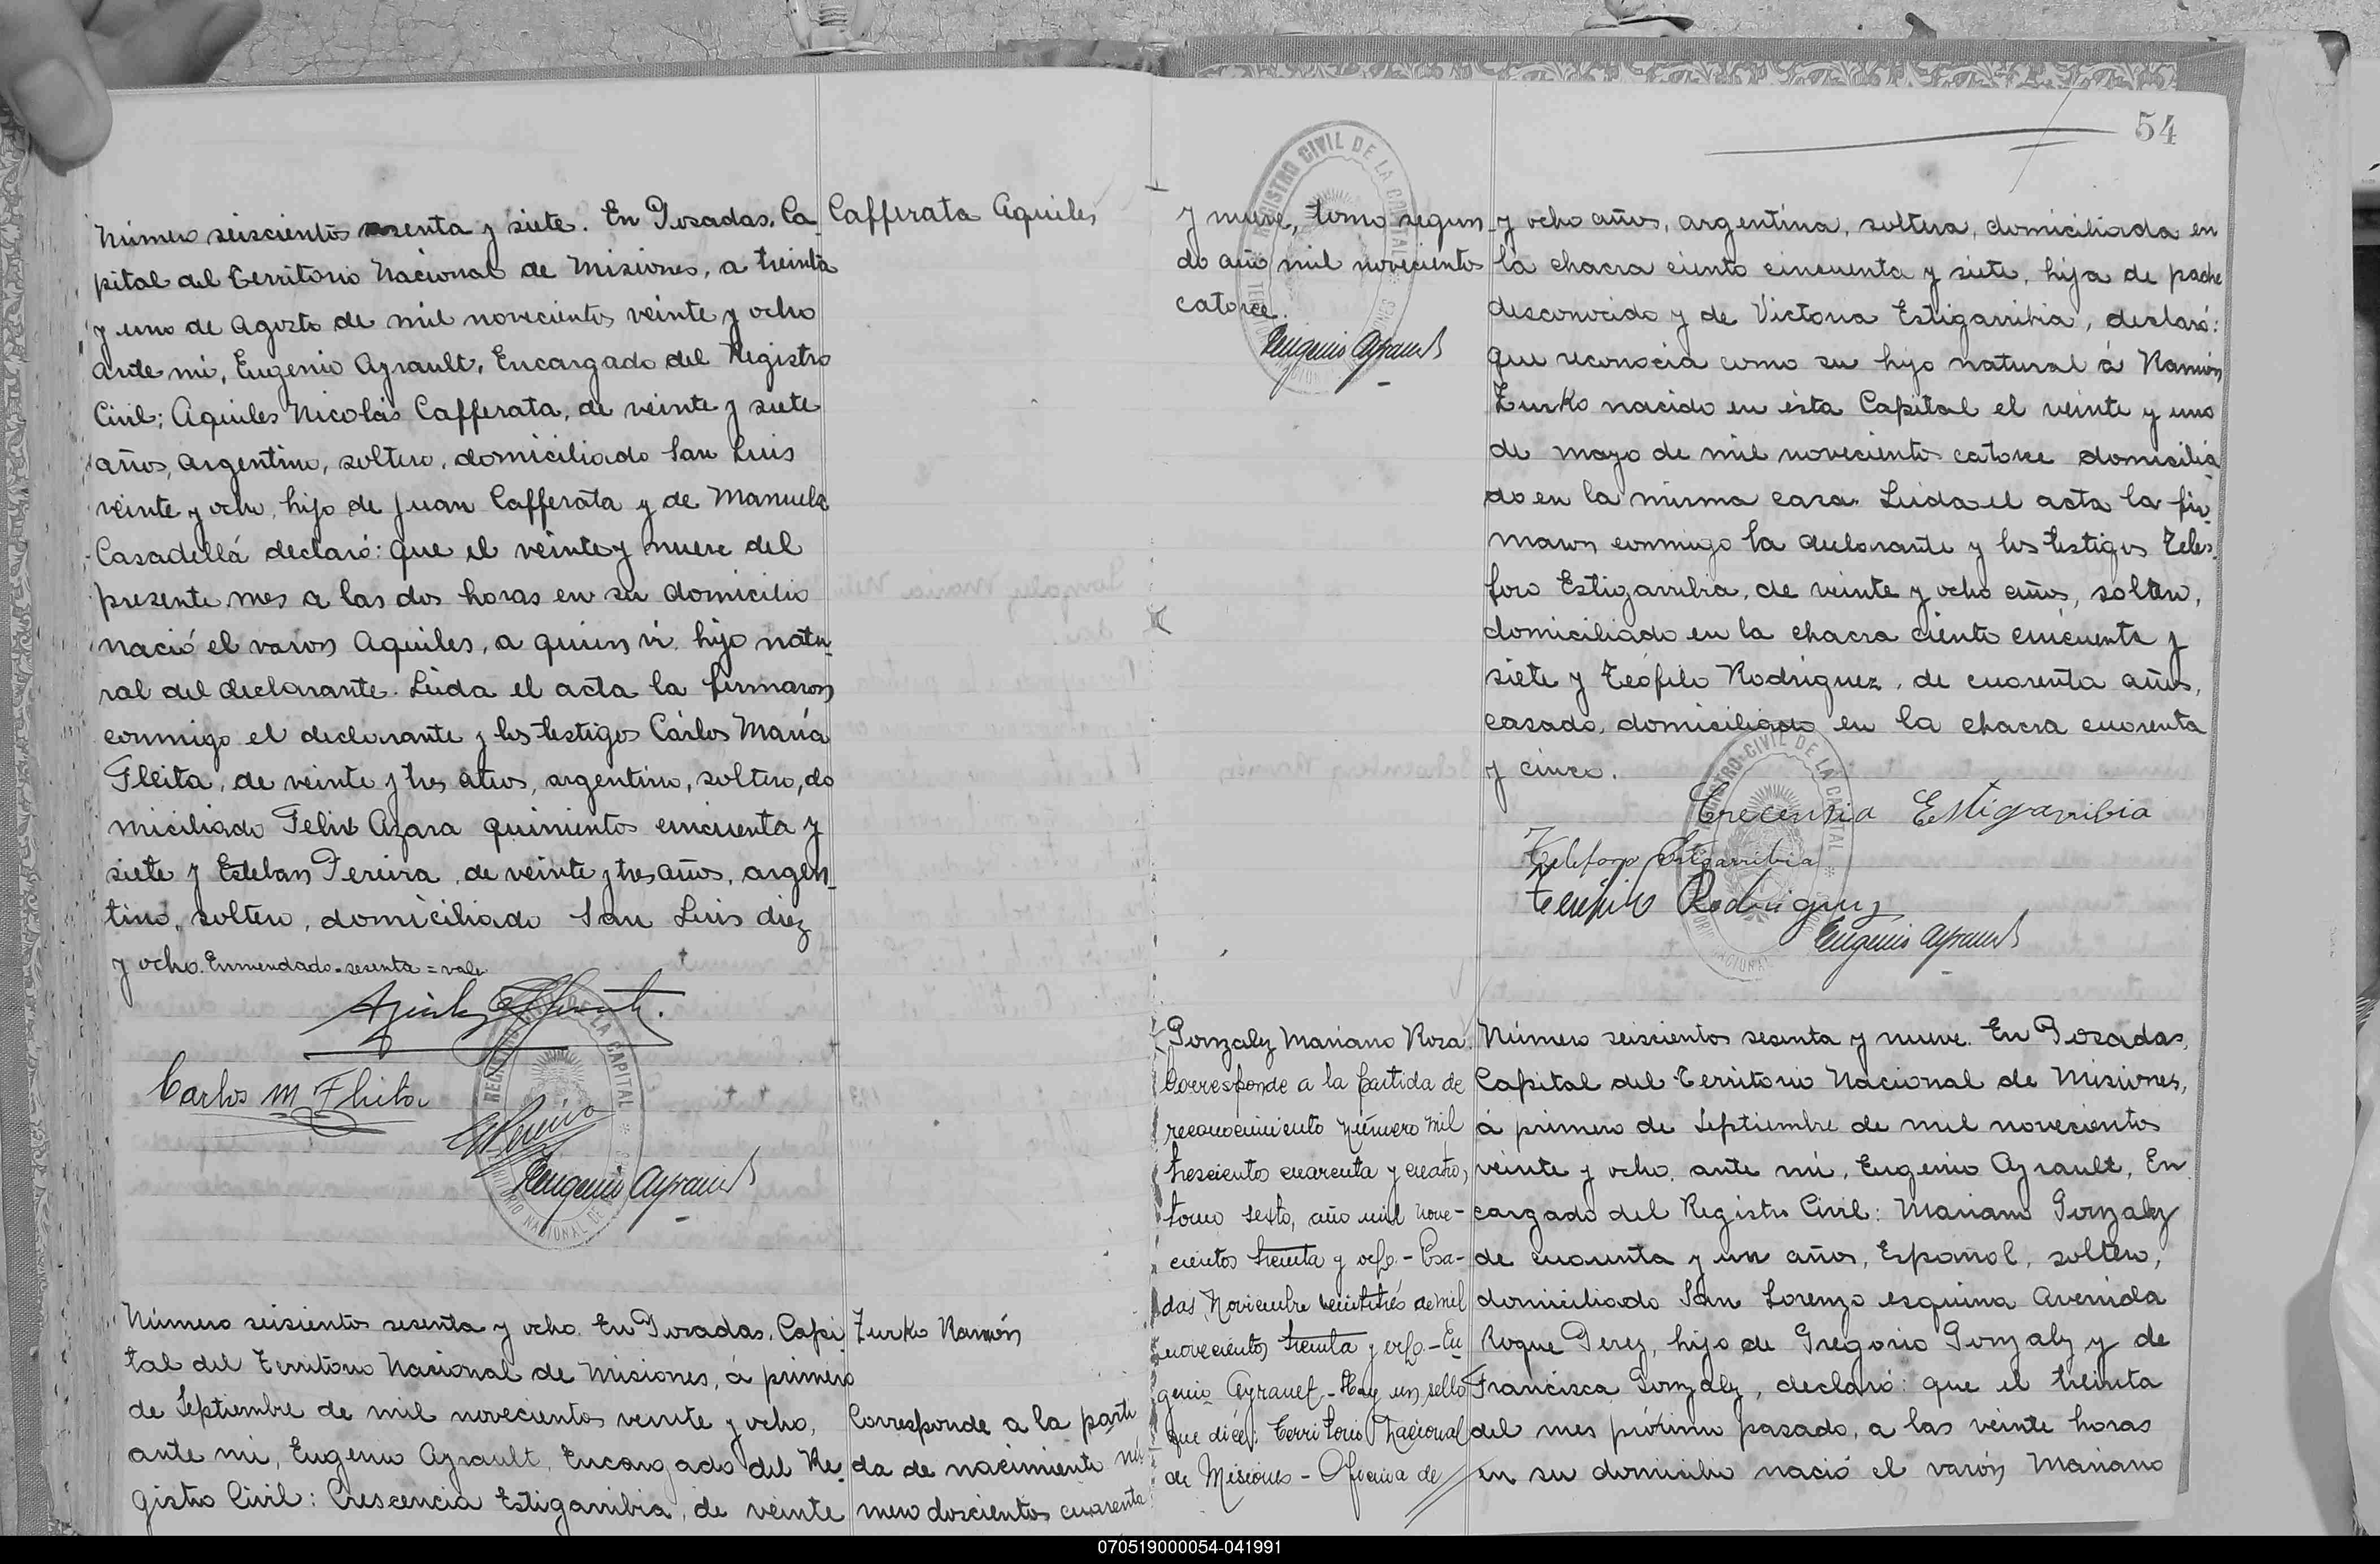 Número seiscientos sesenta y siete. En Posadas, Ca-
pital del Territorio Nacional de Misiones, a treinta
y uno de Agosto de mil novecientos veinte y ocho
ante mi, Eugenio Ayrault, Encargado del Registro
Civil; Aquiles Nicolás Cafferata, de veinte y siete
años, argentino, soltero, domiciliado San Luis
veinte y ocho, hijo de Juan Cafferata y de Manuela
Casadellá declaró: que el veinte y nueve del
presente mes a las dos horas en su domicilio
nació el varon Aquiles, a quien ví. hijo natu-
ral del declarante. Leida el acta la firmaron
conmigo el declarante y los testigos Cárlos María
Fleita, de veinte y tres años, argentino, soltero, do
miciliado Felix Azara quinientos cincuenta y
siete y Esteban Pereira, de veinte y tres años, argen-
tino, soltero, domiciliado San Luis diez
y ocho. Enmendado=sesenta=vale
Carlos M Fleita
Eugenio Ayrault
REGISTRO CIVIL DE LA CAPITAL
TERRITORIO NACIONAL DE
Cafferata Aquiles
Número seisientos sesenta y ocho. En Posadas, Capi
tal del Territorio Nacional de Misiones, á primero
de Septiembre de mil novecientos veinte y ocho,
ante mi, Eugenio Ayrault, Encargado del Re-
gistro Civil: Crescencia Estigarribia, de veinte
Zurko Ramón
Corresponde a la parti
da de nacimiento nú
mero doscientos cuarenta
54
y nueve, tomo segun-
do año mil novecientos
catorce.
Eugenio Ayrault
REGISTRO CIVIL DE LA CAPITAL
y ocho años, argentina, soltera, domiciliada en
la chacra ciento cincuenta y siete, hija de padre
desconocido y de Victoria Estigarribia, declaró:
que reconocia como su hijo natural á Ramón
Zurko nacido en ésta Capital el veinte y uno
de mayo de mil novecientos catorce domicilia
do en la misma casa. Leida el acta la fir-
maron conmigo la declarante y los testigos Teles-
foro Estigarribia, de veinte y ocho años, soltero,
domiciliado en la chacra ciento cincuenta y
siete y Teófilo Rodriguez, de cuarenta años,
casado, domiciliado en la chacra cuarenta
y cinco.
Crecensia Estigarribia
Telesforo Estigarribia
Teofilo Rodriguez
Eugenio Ayrault
REGISTRO CIVIL DE LA CAPITAL
Gonzalez Mariano Rosa.
Corresponde a la partida de
reconocimiento número mil
trescientos cuarenta y cuatro,
tomo sexto, año mil nove-
cientos treinta y ocho.- Posa-
das, Noviembre veintitrés de mil
novecientos treinta y ocho.- Eu-
genio Ayrault - Hay un sello
que dice: Territorio Nacional
de Misiones - Oficina de
Número seiscientos sesenta y nueve. En Posadas,
Capital del Territorio Nacional de Misiones,
á primero de Septiembre de mil novecientos
veinte y ocho, ante mi, Eugenio Ayrault, En
cargado del Registro Civil: Mariano Gonzalez
de cuarenta y un años, Español, soltero,
domiciliado San Lorenzo esquina Avenida
Roque Perez, hijo de Gregorio Gonzalez y de
Francisca Gonzalez, declaró: que el treinta
del mes próximo pasado, a las veinte horas
en su domicilio nació el varón Mariano
070519000054-041991